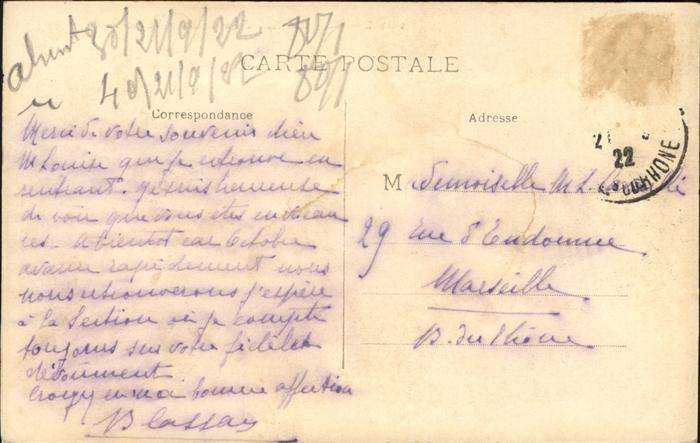 absent 30/21/9/22 87/1
40/21/9/22 89/1
CARTE POSTALE
Correspondance
Adresse
Merci de votre souvenir bien
M Louise que je retrouve en
rentrant. je suis heureuse
de voir que vous êtes en vacan
ces. A bientot car Octobre
avance rapidement nous
nous retrouverons j'espère
à la Section où je compte
toujours sur votre fidèle et
dévouement
Croyez en ma bonne affection
B Lassan
22
DU RHONE
M Demoiselle M L
29 Rue d'Endoume
Marseille
B. du Rhône